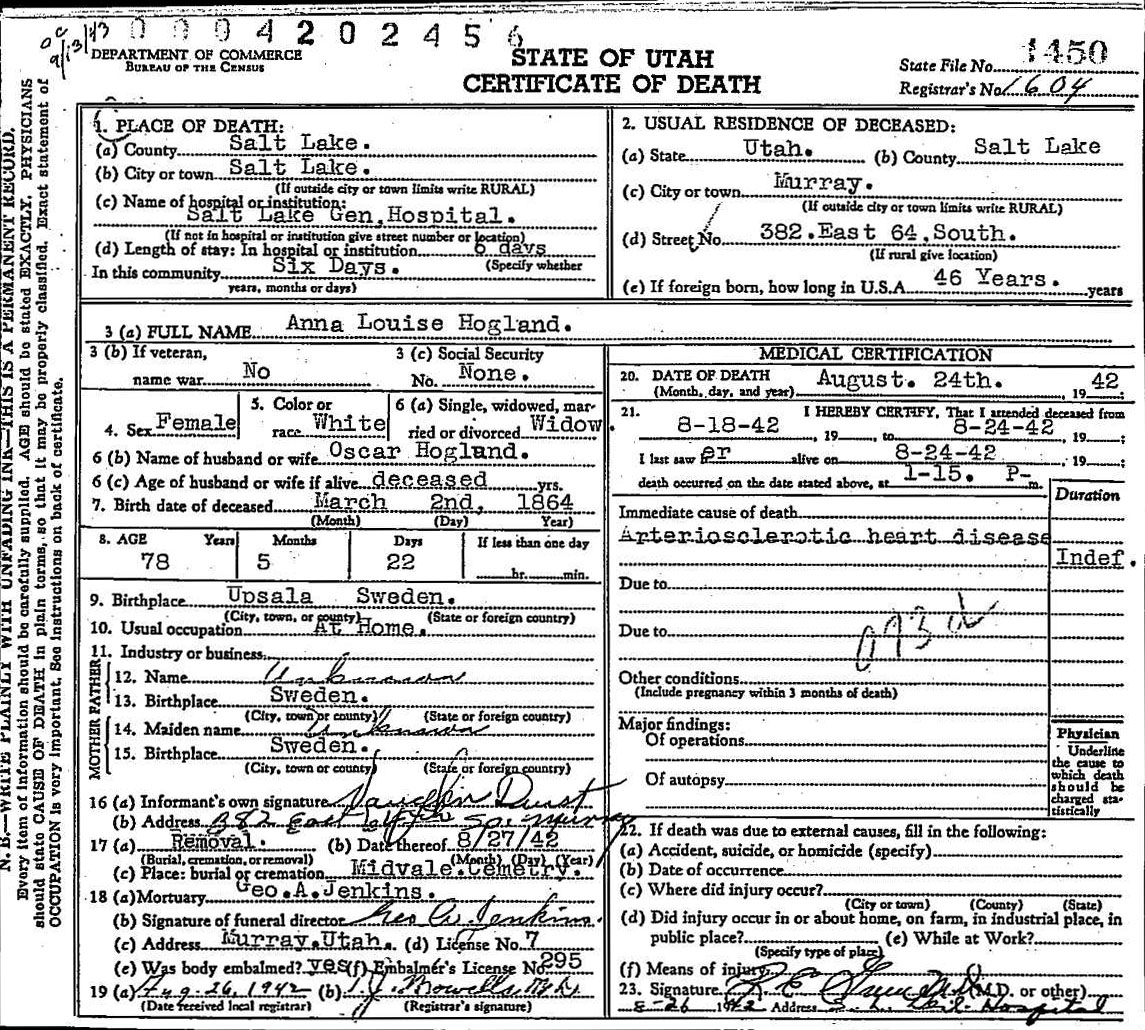 0004202456
9/13/43
DEPARTMENT OF COMMERCE
BUREAU OF THE CENSUS
STATE OF UTAH
CERTIFICATE OF DEATH
State File No. 1450
Registrar's No. 1604
N. B.—WRITE PLAINLY WITH UNFADING INK—THIS IS A PERMANENT RECORD.
Every item of information should be carefully supplied. AGE should be stated EXACTLY. PHYSICIANS
should state CAUSE OF DEATH in plain terms, so that it may be properly classified. Exact statement of
OCCUPATION is very important. See instructions on back of certificate.
1. PLACE OF DEATH:
(a) County Salt Lake.
(b) City or town Salt Lake.
(If outside city or town limits write RURAL)
(c) Name of hospital or institution:
Salt Lake Gen,Hospital.
(If not in hospital or institution give street number or location)
(d) Length of stay: In hospital or institution 6 days
(Specify whether
In this community Six Days.
years, months or days)
2. USUAL RESIDENCE OF DECEASED:
(a) State Utah. (b) County Salt Lake
(c) City or town Murray.
(If outside city or town limits write RURAL)
(d) Street No. 382.East 64,South.
(If rural give location)
(e) If foreign born, how long in U.S.A. 46 Years. years
3 (a) FULL NAME Anna Louise Hogland.
3 (b) If veteran,
name war. No
3 (c) Social Security
No. None.
4. Sex Female
5. Color or
race White
6 (a) Single, widowed, mar-
ried or divorced Widow.
6 (b) Name of husband or wife Oscar Hoglund.
6 (c) Age of husband or wife if alive deceased yrs.
7. Birth date of deceased March 2nd, 1864
(Month) (Day) Year)
8. AGE Years Months Days If less than one day
78 5 22 hr. min.
9. Birthplace Upsala Sweden.
(City, town, or county) (State or foreign country)
10. Usual occupation At Home.
11. Industry or business
FATHER
12. Name Unknown
13. Birthplace Sweden.
(City, town or county) (State or foreign country)
MOTHER
14. Maiden name Unknown
15. Birthplace Sweden.
(City, town or county) (State or foreign country)
16 (a) Informant's own signature Vaughn Durst
(b) Address 382 East 64th So. Murray
17 (a) Removal. (b) Date thereof 8/27/42
(Burial, cremation, or removal) (Month) (Day) (Year)
(c) Place: burial or cremation Midvale.Cemetry.
18 (a) Mortuary Geo.A.Jenkins.
(b) Signature of funeral director Geo A. Jenkins.
(c) Address Murray.Utah. (d) License No. 7
(e) Was body embalmed? yes (f) Embalmer's License No. 295
19 (a) Aug. 26, 1942 (b)
(Date received local registrar) (Registrar's signature)
MEDICAL CERTIFICATION
20. DATE OF DEATH August. 24th. 19 42
(Month, day, and year)
21. I HEREBY CERTIFY, That I attended deceased from
8-18-42, 19 to 8-24-42 19 ;
I last saw her alive on 8-24-42 19 ;
death occurred on the date stated above, at 1-15. P- m.
Duration
Immediate cause of death
Arteriosclerotic heart disease
Indef.
Due to
Due to
093d
Other conditions
(Include pregnancy within 3 months of death)
Major findings:
Of operations
Of autopsy
Physician
Underline
the cause to
which death
should be
charged sta-
tistically
22. If death was due to external causes, fill in the following:
(a) Accident, suicide, or homicide (specify)
(b) Date of occurrence
(c) Where did injury occur?
(City or town) (County) (State)
(d) Did injury occur in or about home, on farm, in industrial place, in
public place? (e) While at Work?
(Specify type of place)
(f) Means of injury
23. Signature (M.D. or other)
8-26 1942 Address Hospital